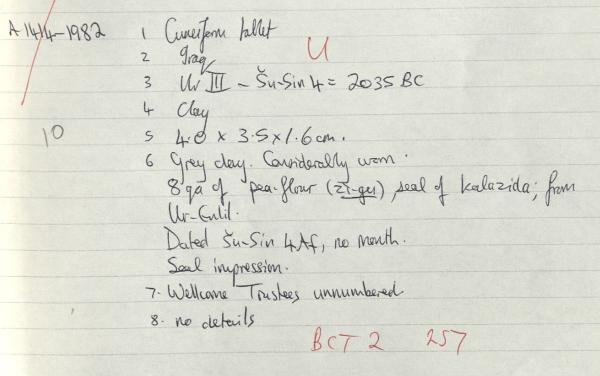 A 1414-1982 1 Cuneiform tablet
2 Iraq U
3 Ur III - Šu-Sin 4 = 2035 BC
4 Clay
10
5 4.0 x 3.5 x 1.6 cm.
6 Grey clay. Considerably worn.
8 qa of pea-flour (zì-gu), seal of Kalazida; from
Ur-Enlil.
Dated Šu-Sin 4Af, no month.
Seal impression.
7. Wellcome Trustees unnumbered
8. no details
BCT 2 257